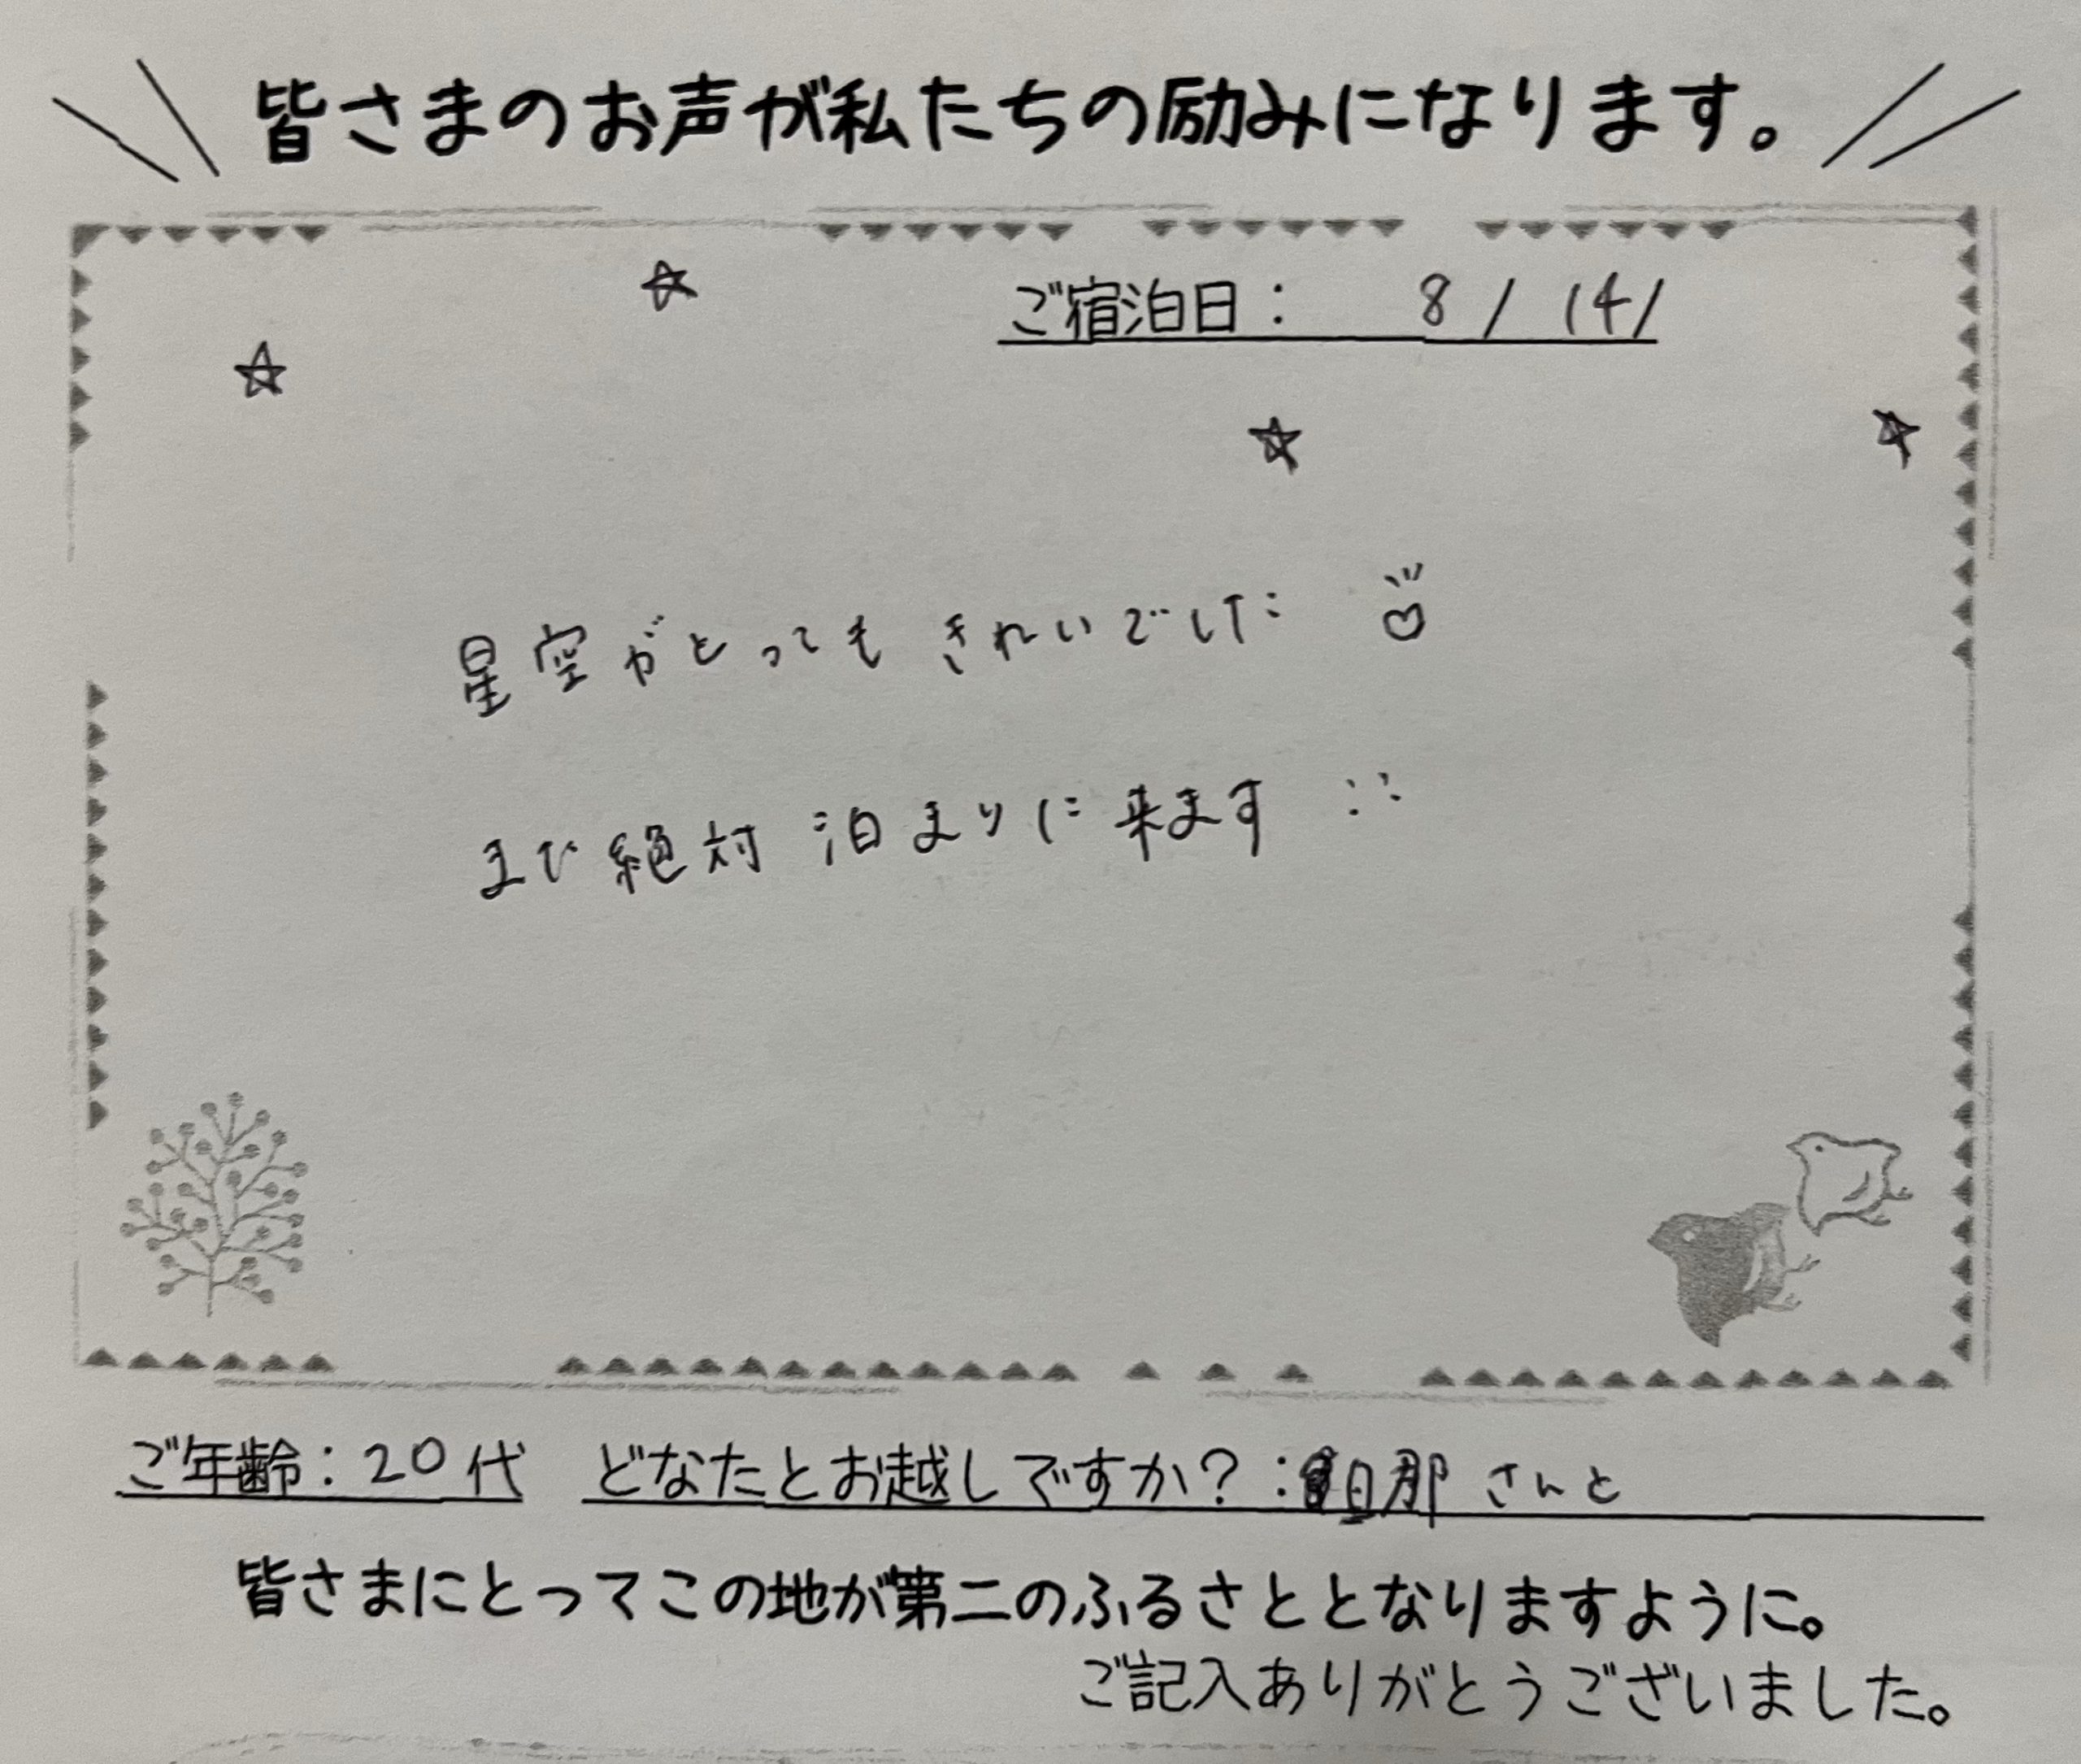 皆さまのお声が私たちの励みになります。
ご宿泊日： 8/14/
星空がとってもきれいでした
また絶対泊まりに来ます
ご年齢：20代 どなたとお越しですか？：旦那さんと
皆さまにとってこの地が第二のふるさととなりますように。
ご記入ありがとうございました。